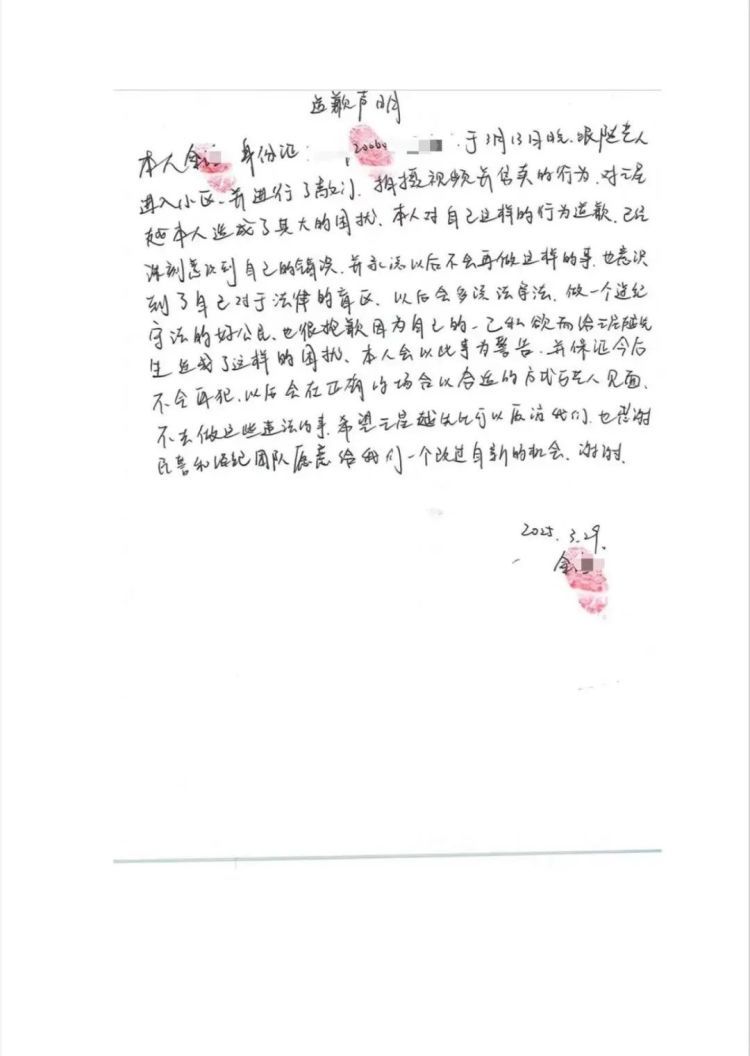 道歉声明
本人金 身份证: 2006 于3月13日晚,跟随艺人
进入小区,并进行了敲门,拍摄视频并售卖的行为,对王星
越本人造成了莫大的困扰,本人对自己这样的行为道歉,已经
深刻意识到自己的错误,并承诺以后不会再做这样的事,也意识
到了自己对于法律的盲区,以后会多读法守法,做一个遵纪
守法的好公民,也很抱歉因为自己的一己私欲而给王星越先
生造成了这样的困扰,本人会以此事为警告,并保证今后
不会再犯,以后会在正确的场合以合适的方式与艺人见面,
不去做这些违法的事,希望王星越先生可以原谅我们,也感谢
民警和经纪团队愿意给我们一个改过自新的机会,谢谢.
2025.3.29.
金